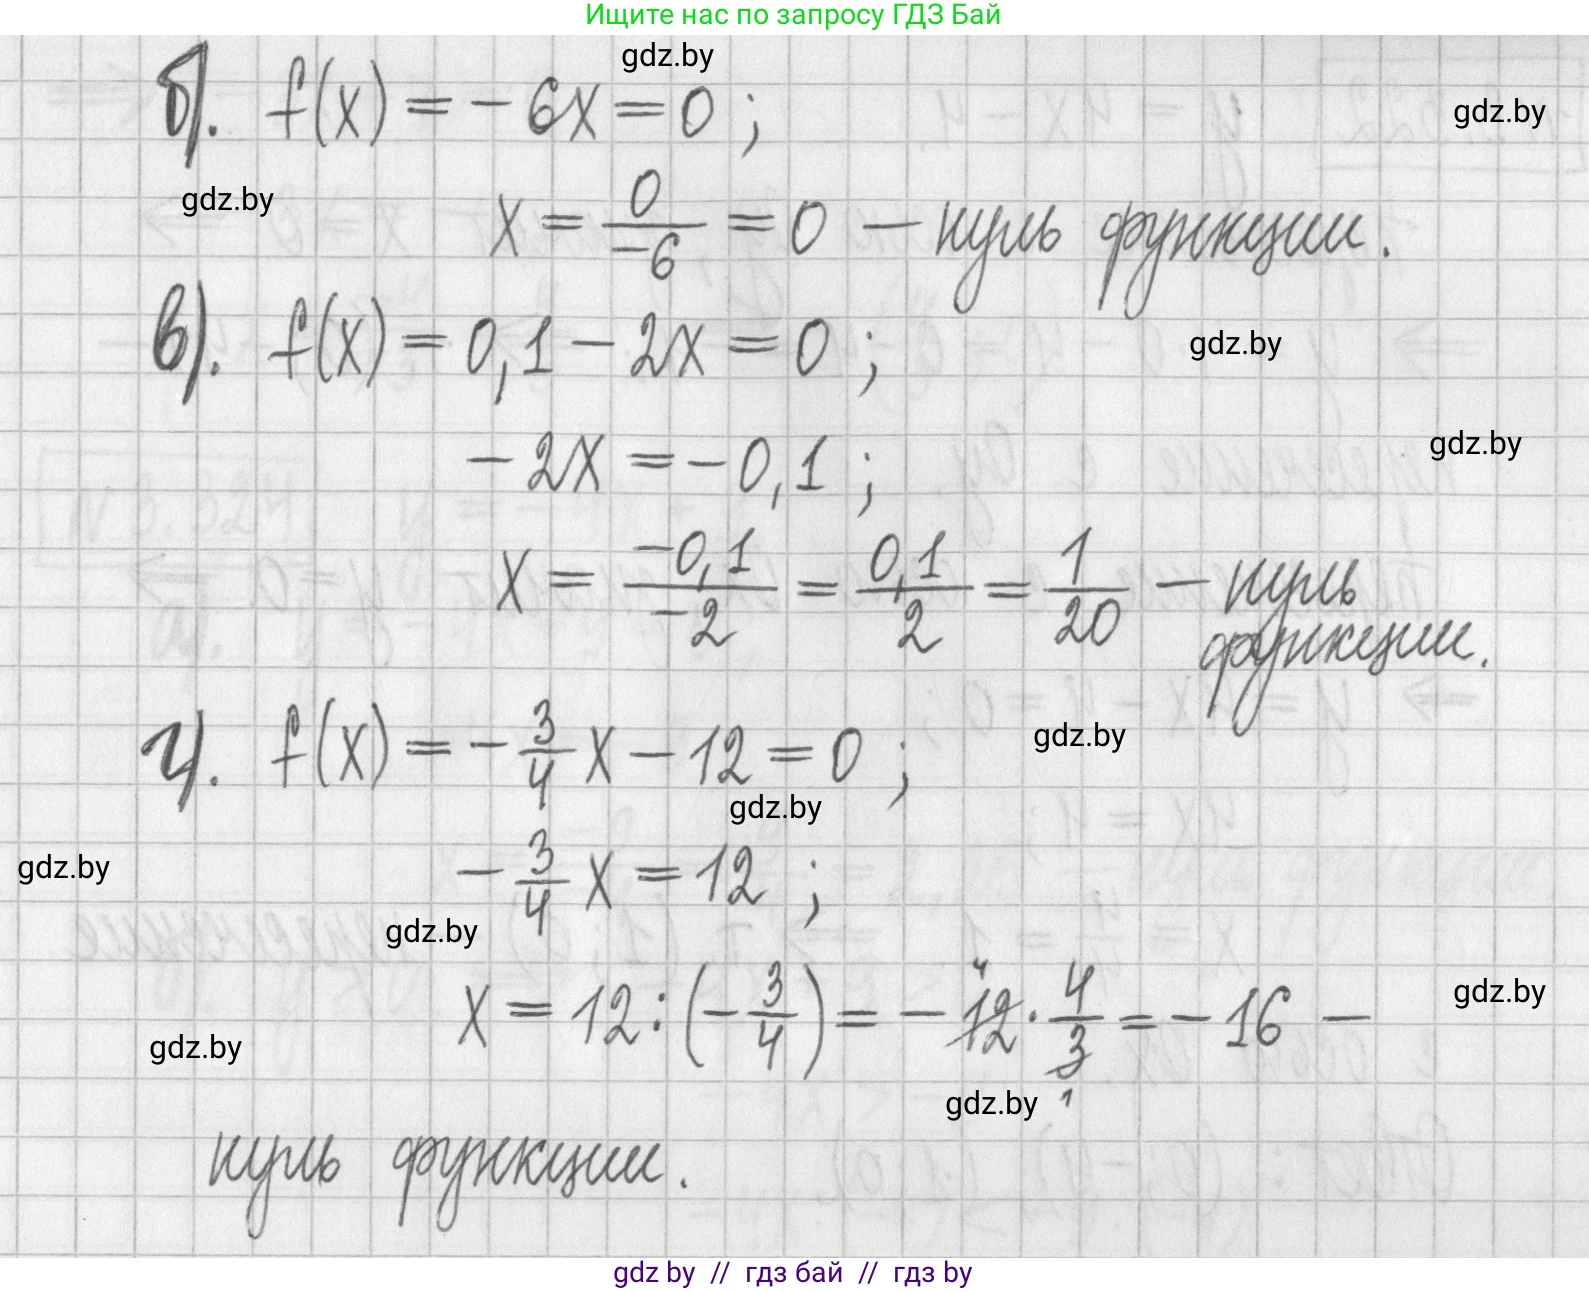 Ищите нас по запросу ГДЗ Бай
gdz.by
б). f(x) = - 6x = 0 ;
gdz.by
gdz.by
x = 0/-6 = 0 - нуль функции.
в). f(x) = 0,1 - 2x = 0 ;
gdz.by
-2x = -0,1 ;
gdz.by
x = -0,1/-2 = 0,1/2 = 1/20 - нуль
функции.
г). f(x) = - 3/4 x - 12 = 0 ;
gdz.by
gdz.by
- 3/4 x = 12 ;
gdz.by
gdz.by
x = 12 : (- 3/4) = - 12 4 · 4/3 1 = - 16 -
gdz.by
gdz.by
gdz.by
нуль функции.
gdz by // гдз бай // гдз by